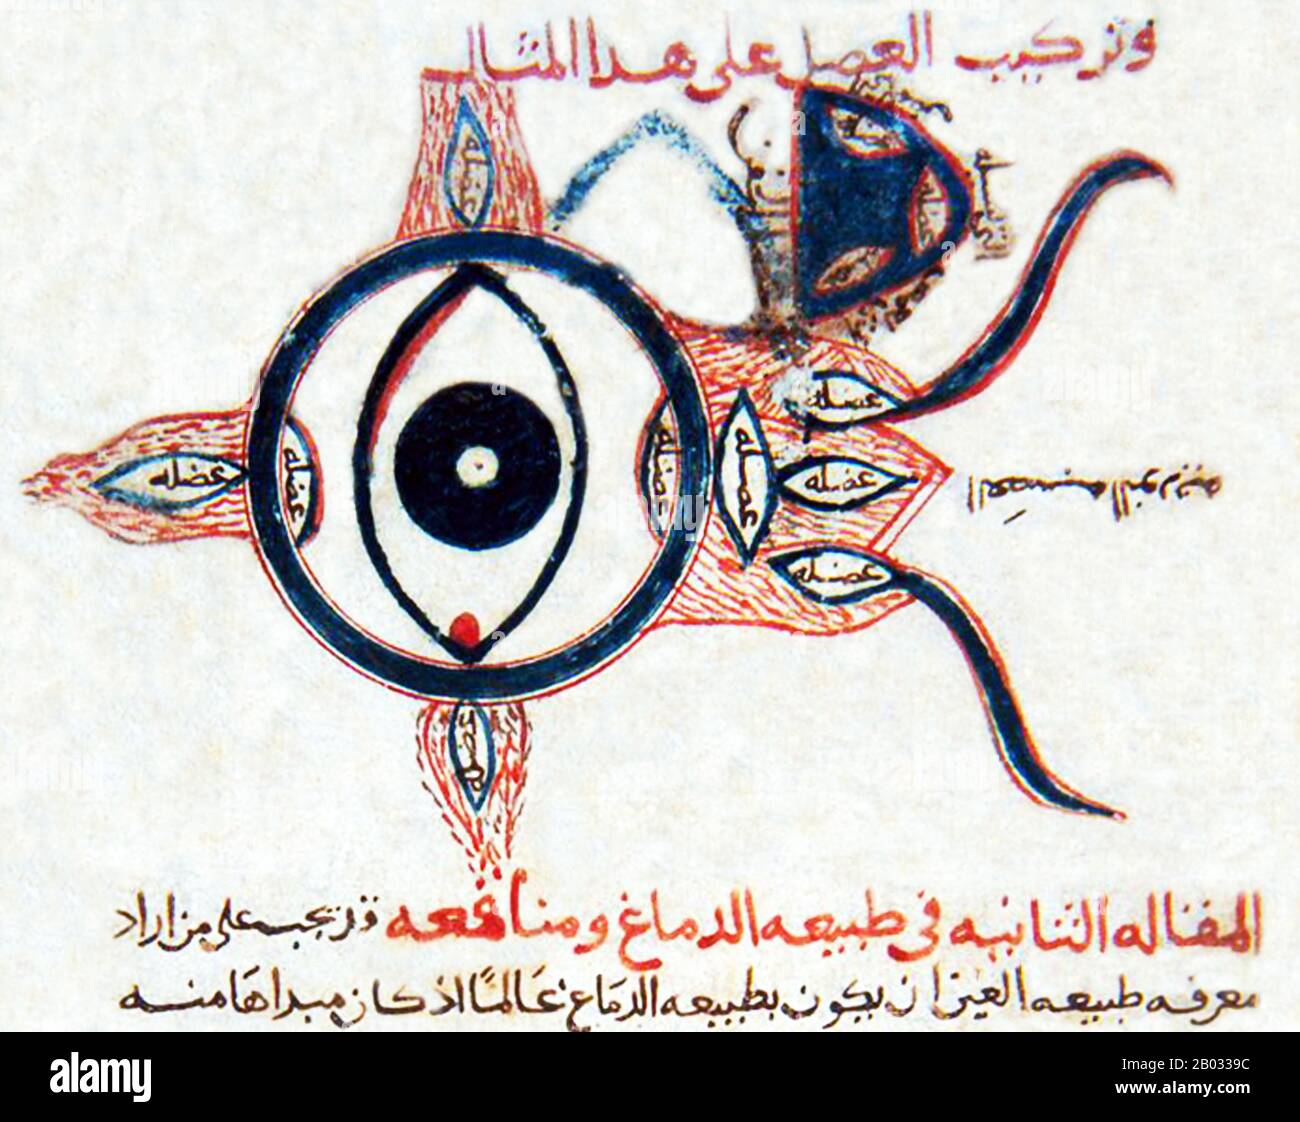 وتركيب العضل على هذا المثال
عضله
الجفن
عضله
عضله
عضله
عضله
عضله
عضله
عضله
عضله
العصبه النوريه
عضله
عضله
المقاله الثانيه فى طبيعه الدماغ ومنافعه قد يجب على من اراد
معرفه طبيعه العين ان يكون بطبيعه الدماغ عالمًا اذ كان مبداها منه
alamy
Image ID: 2B0339C
www.alamy.com